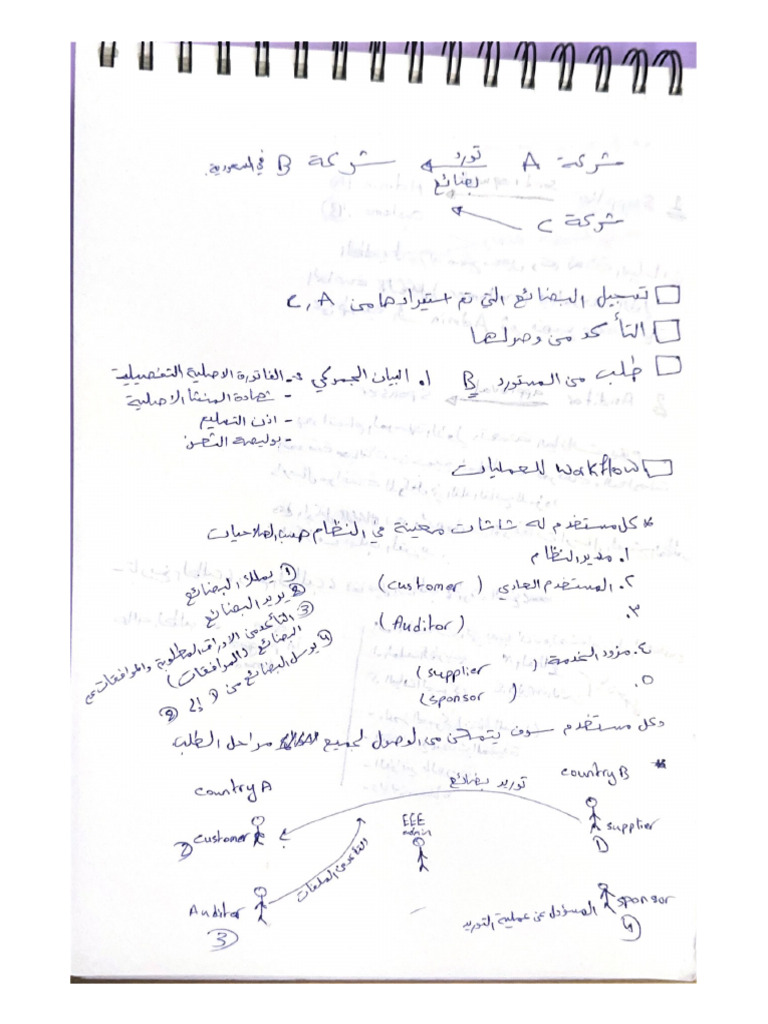 شركة A تورد بضائع شركة B في السعودية.
شركة C
تسجيل البضائع التي تم استيرادها من C, A
التأكد من وصولها
طلب من المستورد B ١. البيان الجمركي - الفاتورة الاصلية التفصيلية
- شهادة المنشأ الاصلية
- اذن التسليم
- بوليصة الشحن
workflow للعمليات
* كل مستخدم له شاشات معينة في النظام حسب الصلاحيات
١. مدير النظام
٢. المستخدم العادي (customer)
٣. (Auditor)
٤. مزود الخدمة (supplier)
٥. (sponsor)
① يملك البضائع
② يريد البضائع
③ التأكد من الاوراق المطلوبة والموافقات
البضائع (والموافقات)
④ يوسل البضائع من ① إلى ②
وكل مستخدم سوف يتمكن من الوصول لجميع مراحل الطلب
* country B
country A
توريد بضائع
EEE
admin
customer ②
supplier ①
التأكد من الملفات
Auditor ③
sponsor ④
المسؤول عن عملية التوريد